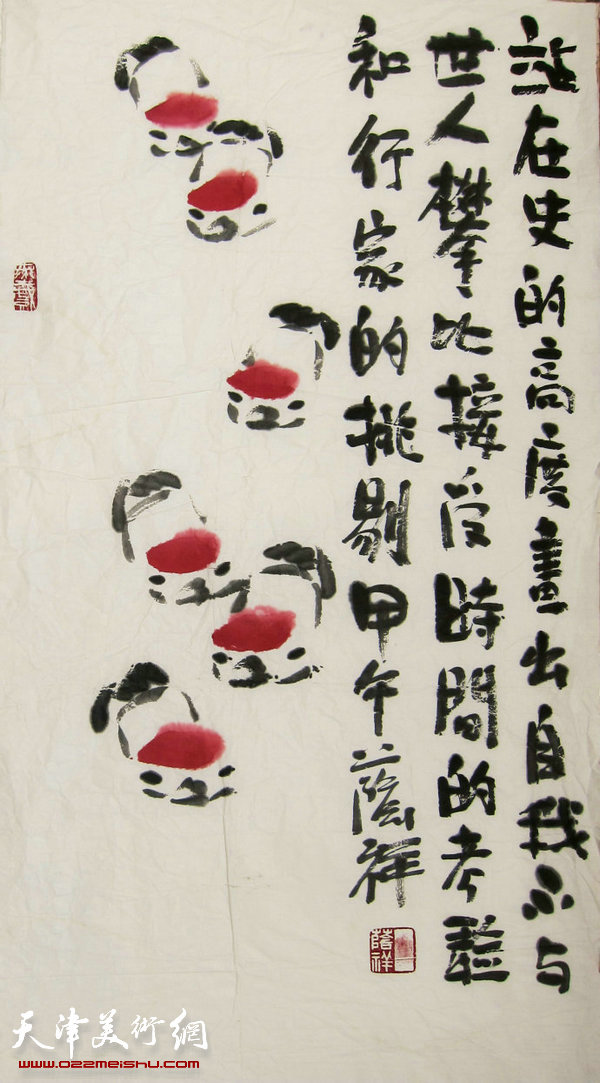 站在史的高度畫出自我不与
世人攀比接受時間的考驗
和行家的挑剔甲午蔭祥
蔭祥
天津美術網
www.022meishu.com